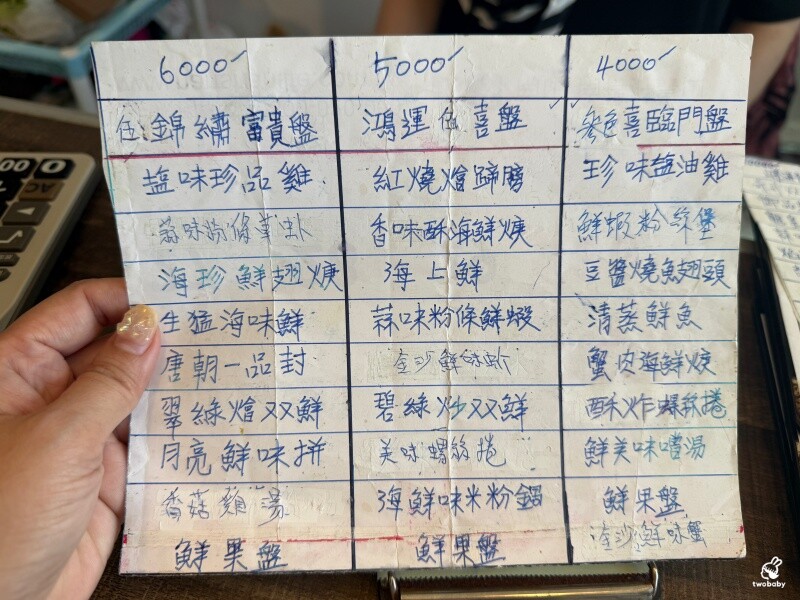 6000
錦繡富貴盤
塩味珍品雞
海珍鮮翅焿
生猛海味鮮
唐朝一品封
翠綠燴双鮮
月亮鮮味拼
香菇雞湯
鮮果盤
5000
鴻運 喜盤
紅燒燴蹄膀
香味酥海鮮焿
海上鮮
蒜味粉條鮮蝦
金沙鮮味
碧綠炒双鮮
美味螺 捲
海鮮味米粉鍋
鮮果盤
4000
喜臨門盤
珍味塩油雞
鮮蝦粉絲堡
豆醬燒魚翅頭
清蒸鮮魚
蟹肉海鮮焿
酥炸 捲
鮮美味噌湯
鮮果盤
金沙鮮味蟹
00
AC
twobaby